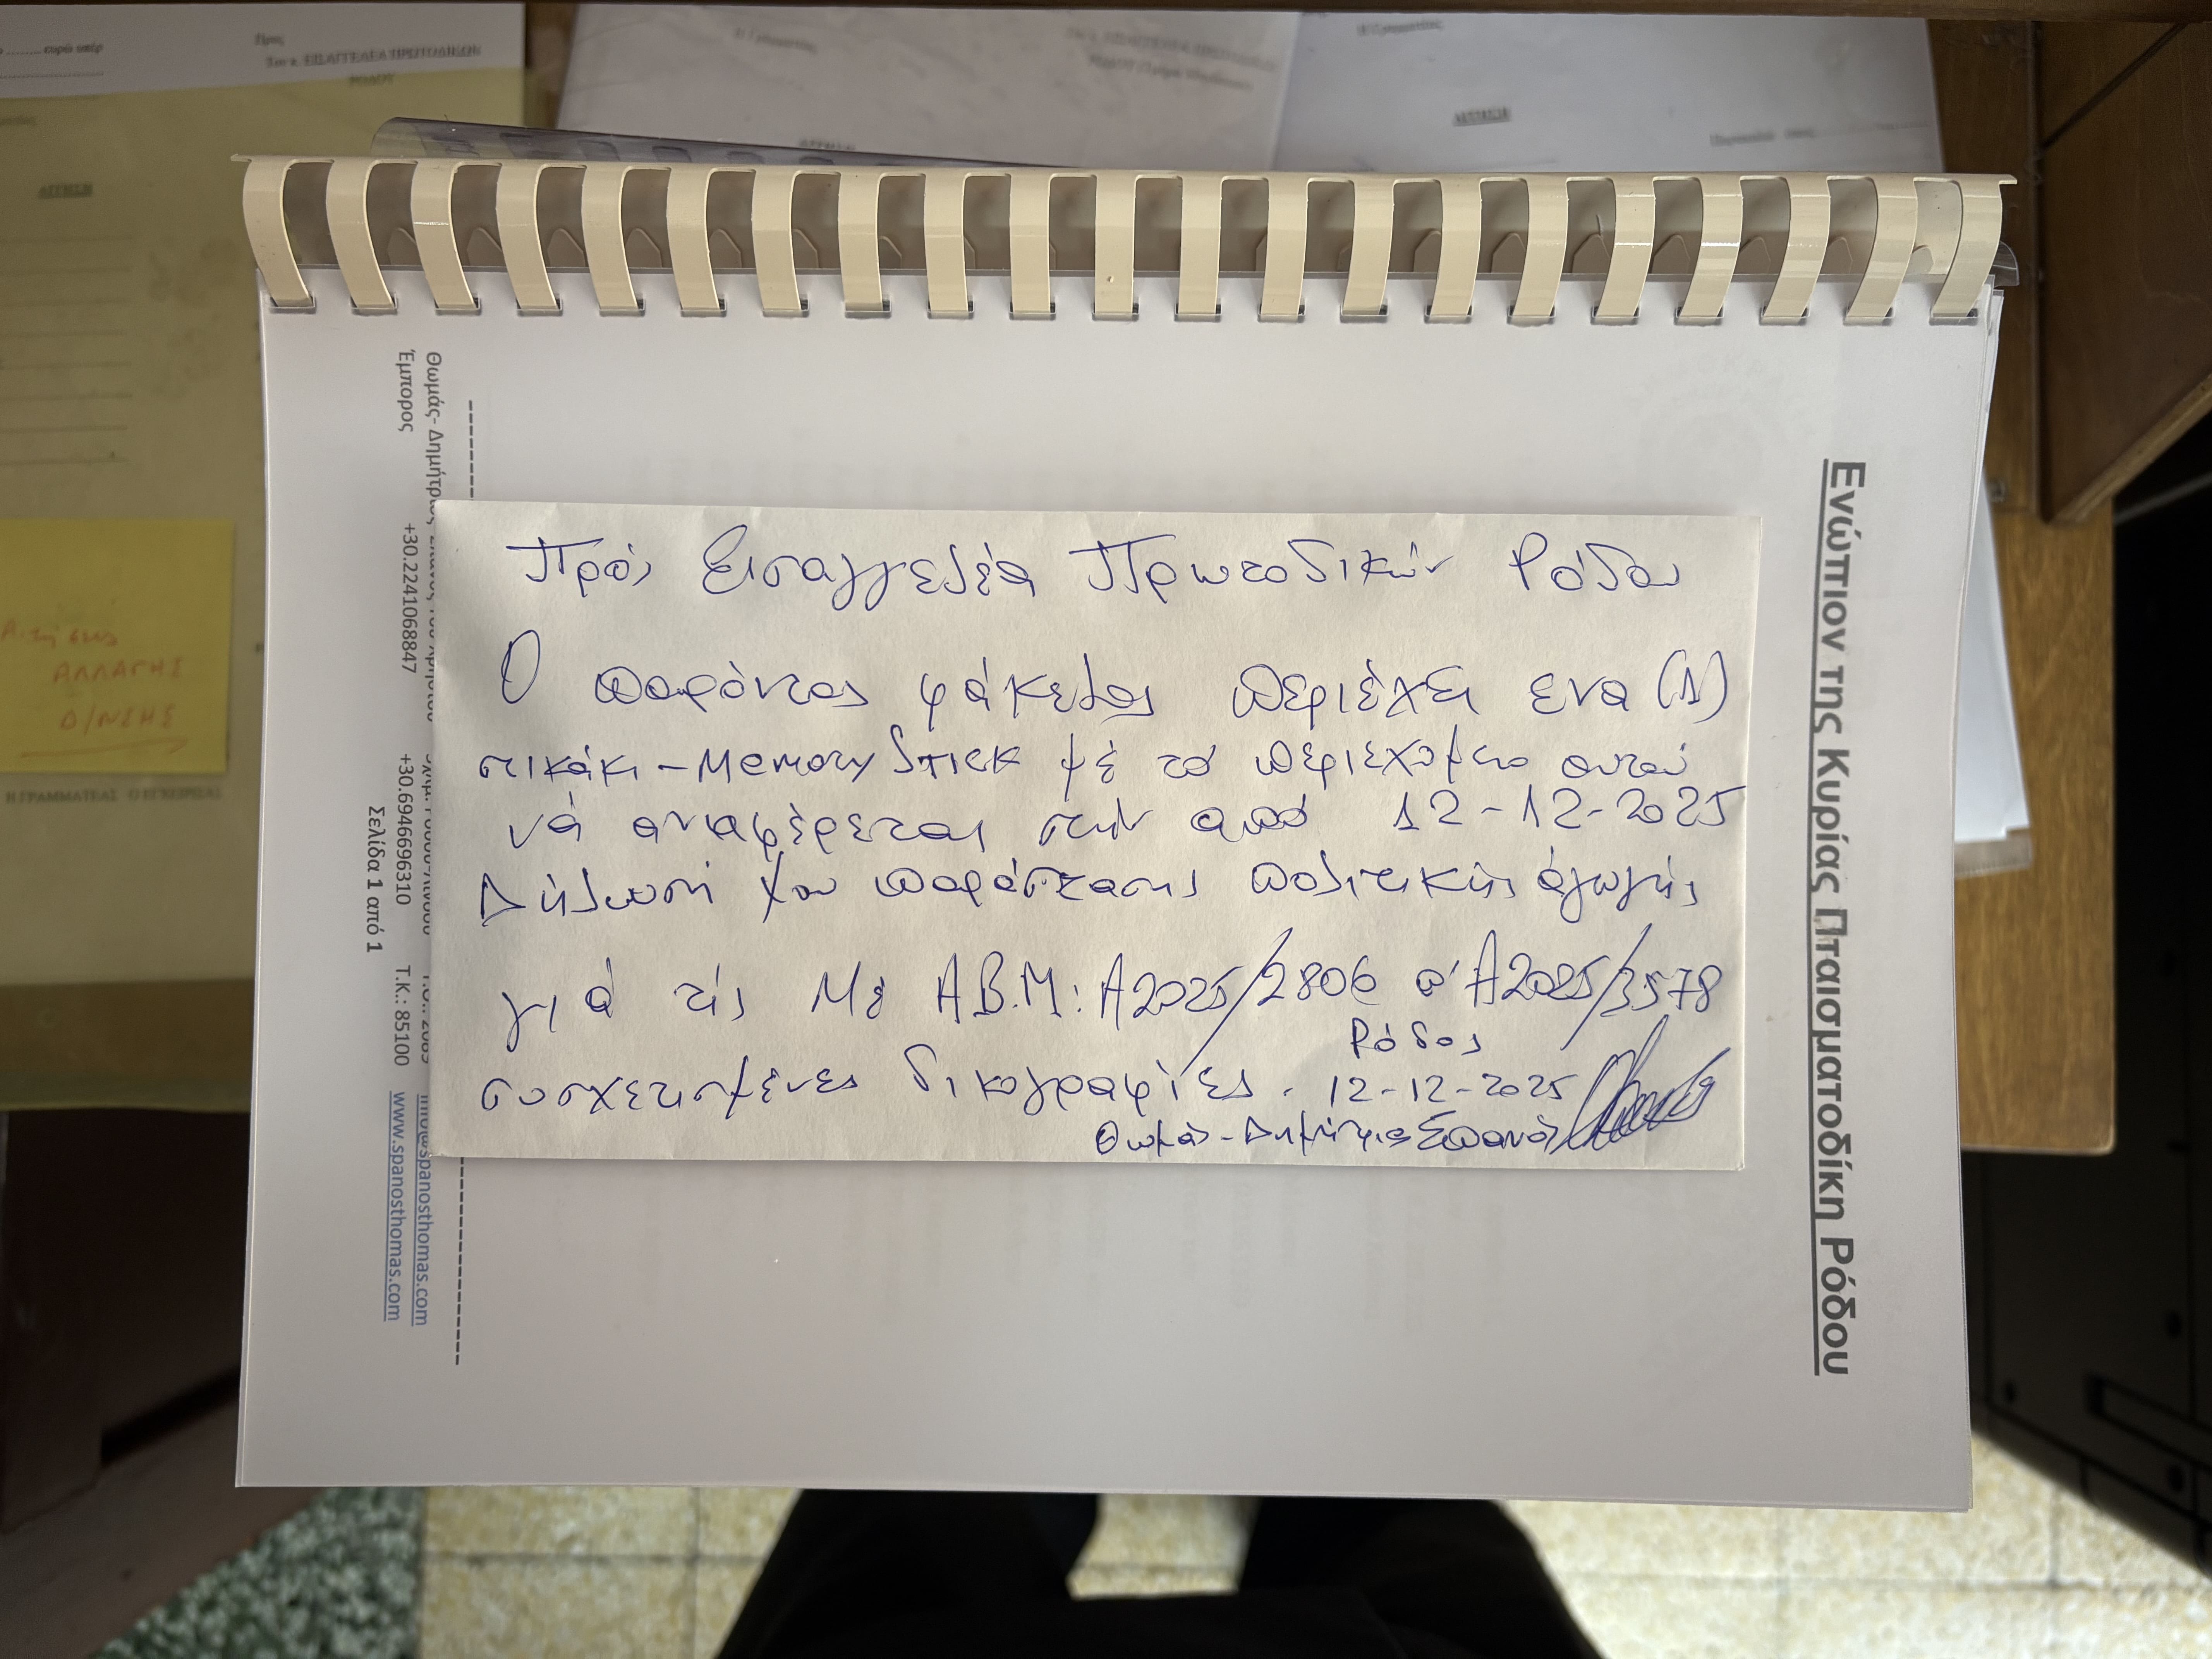 Πρός Εισαγγελέα Πρωτοδικών Ρόδου
Ο παρόντας φάκελος περιέχει ενα (1)
στικάκι - Memory Stick μέ τό περιεχόμενο αυτού
νά αναφέρεται στην από 12-12-2025
Δήλωσή μου παράστασης πολιτικής άγωγής
γιά τίς Με Α.Β.Μ: Α2025/2806 α' Α2025/3578
συσχετισμένες δικογραφίες.
Ρόδος
12-12-2025
Θωμάς - Δημήτριος Σπανός
Ενώπιον της Κυρίας Πταισματοδίκη Ρόδου
Θωμάς- Δημήτριος
Έμπορος +30.2241068847 +30.6946696310 Τ.Κ.: 85100 www.spanosthomas.com
spanosthomas.com
Σελίδα 1 από 1
ΑΛΛΑΓΗΣ
Δ/ΝΣΗΣ
ευρώ υπέρ
Προς
ΕΙΣΑΓΓΕΛΕΑ ΠΡΩΤΟΔΙΚΩΝ
ΡΟΔΟΥ
ΑΙΤΗΣΗ
Η ΓΡΑΜΜΑΤΕΑΣ